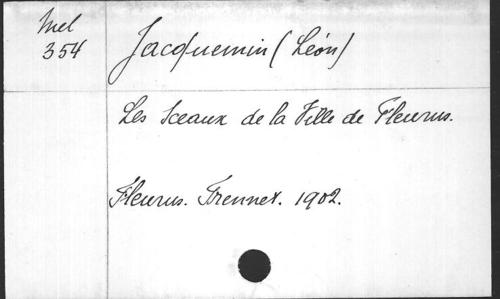 Mel
354
Jacquemin (Léon)
Les Sceaux de la Ville de Fleurus.
Fleurus. Frennet. 1902.